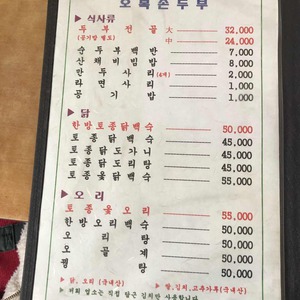 오복손두부
▶ 식사류
두부전골 大 32,000
(공기밥 별도) 中 24,000
순두부백반 7,000
산채비빔밥 8,000
만두사리 (4개) 2,000
라면사리 1,000
공기밥 1,000
▶ 닭
한방토종닭백숙 50,000
토종닭도가니 45,000
토종닭도리탕 45,000
토종옻닭백숙 50,000
▶ 오리
토종옻오리 55,000
한방오리백숙 50,000
오리탕 50,000
오골계 50,000
꿩탕 50,000
▶ 닭, 오리 (국내산) ▶ 쌀,김치,고추가루(국내산)
▶ 저희 업소는 직접 담근 김치만 사용합니다.